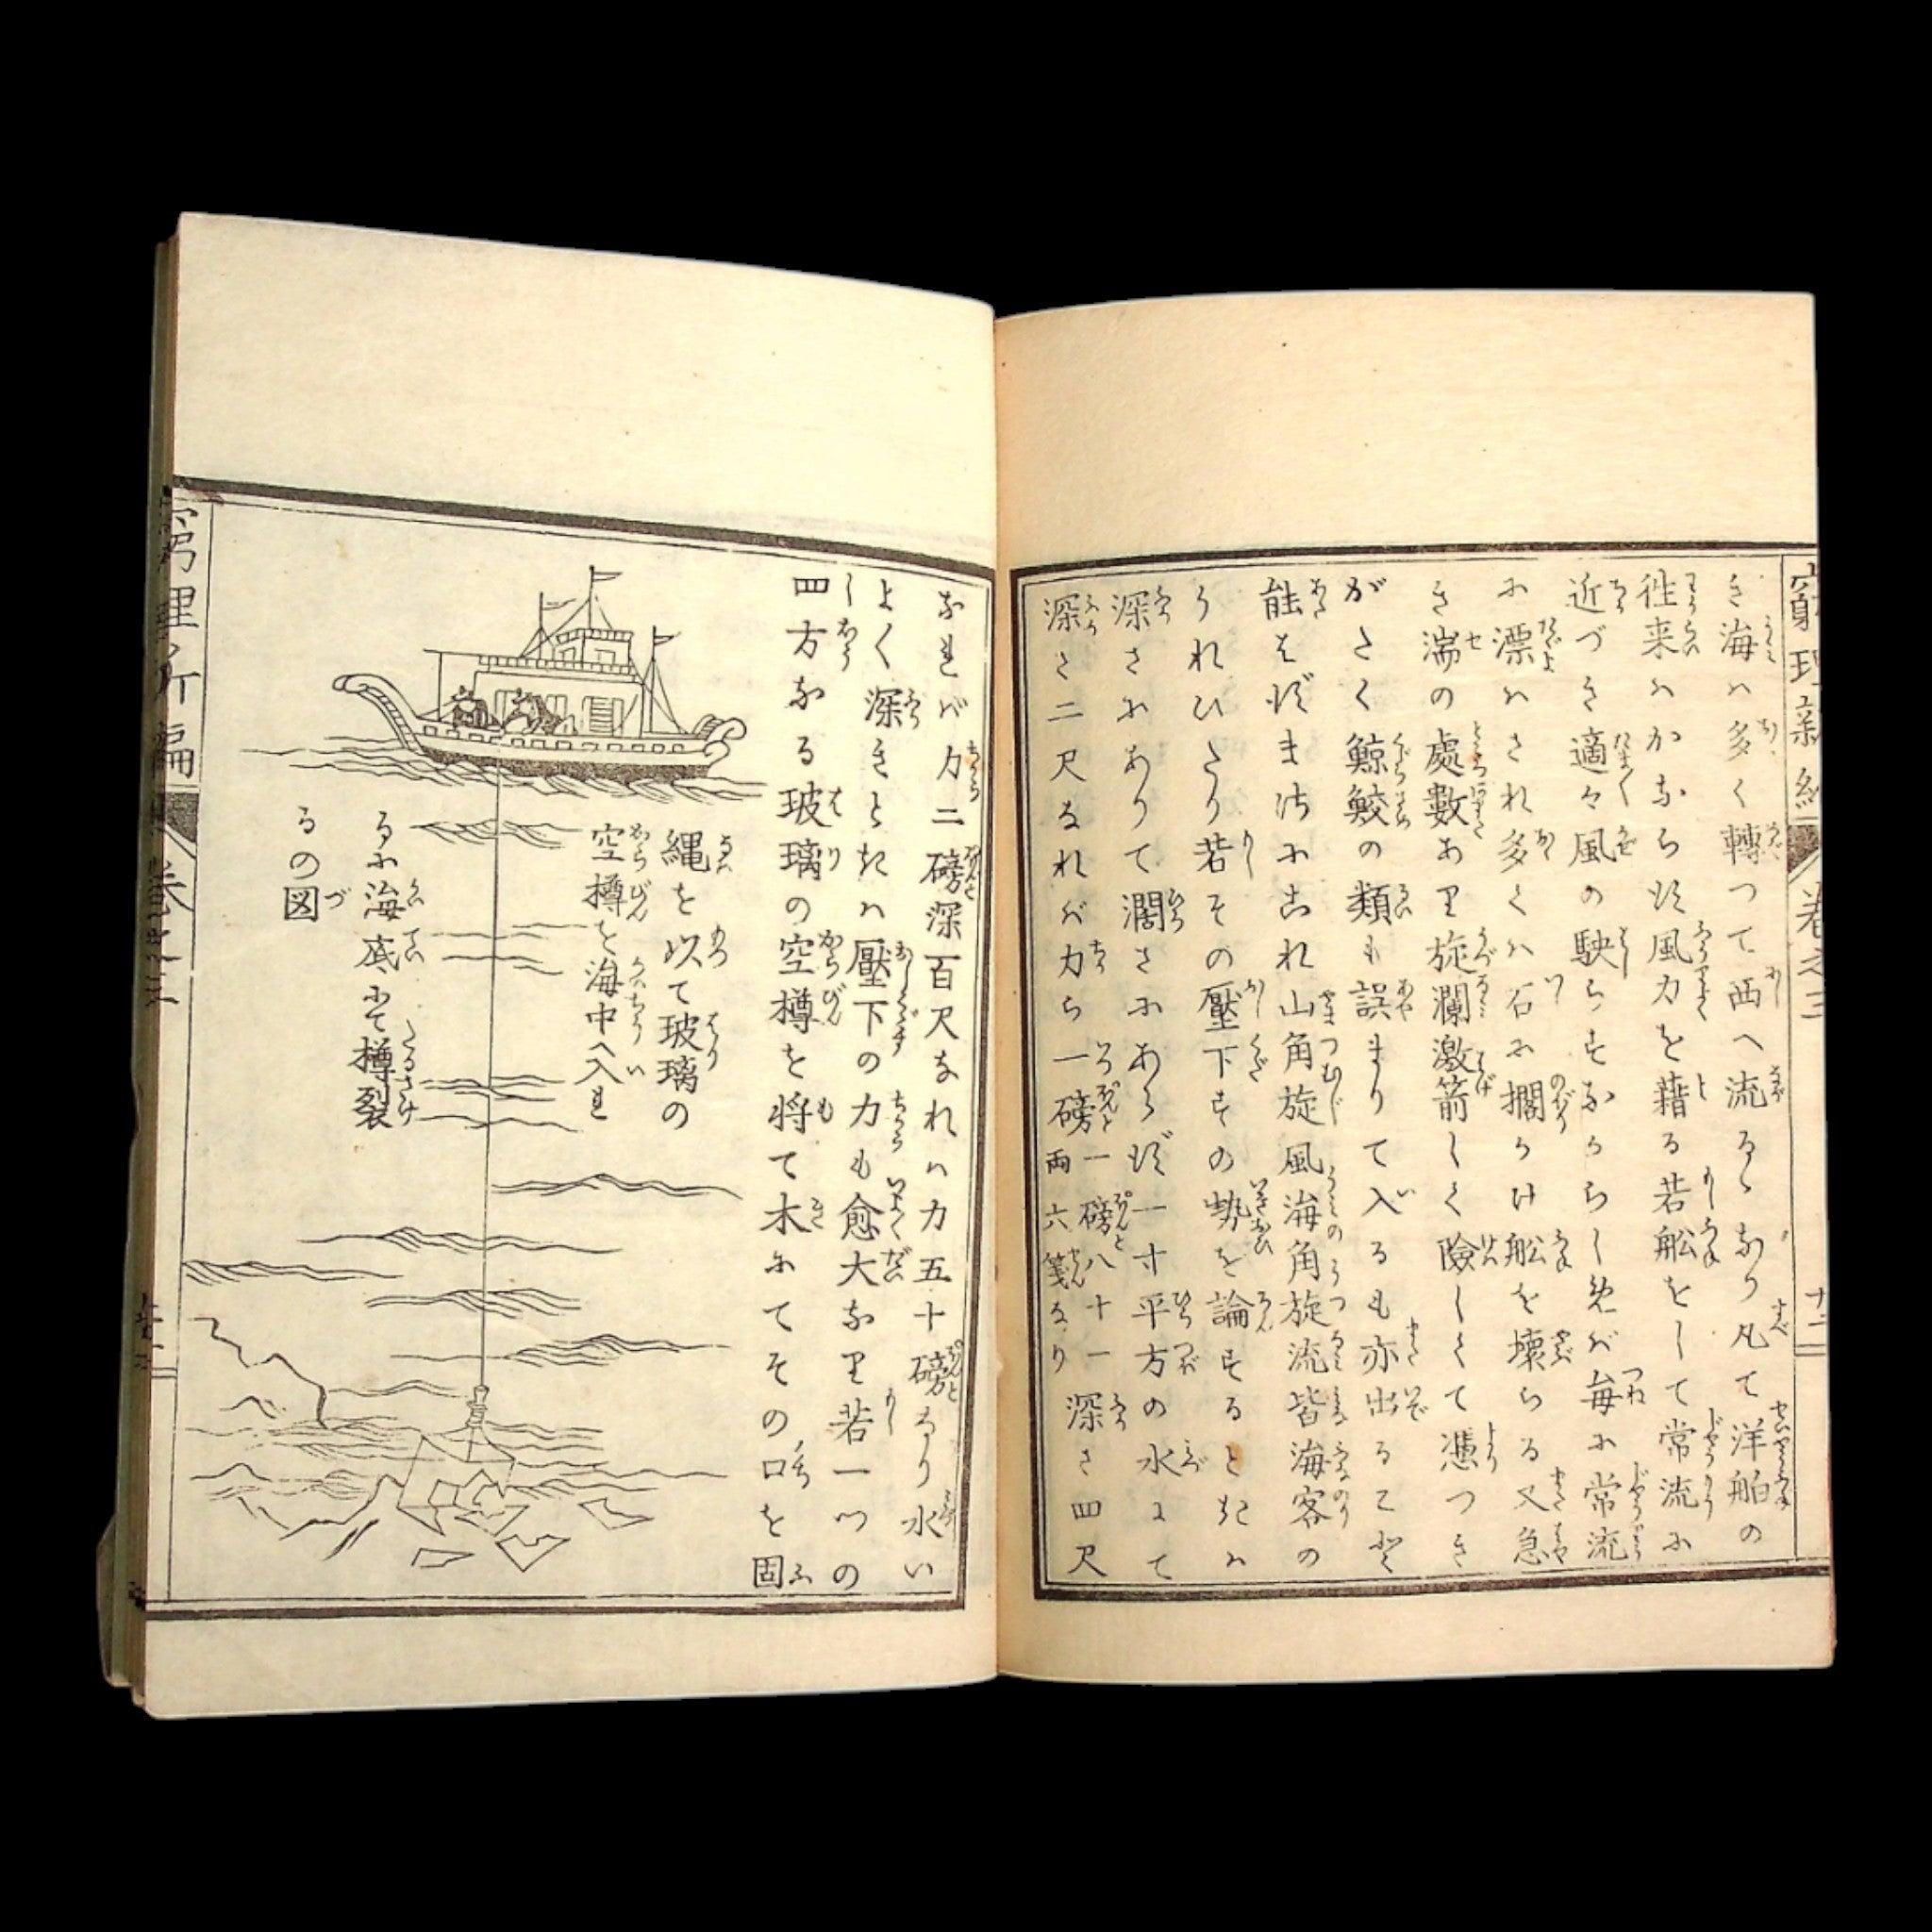 き海ハ多く轉つて西へ流るゝなり凡て洋舶の
徃来ハかならず風力を藉る若舩をして常流に
近づき適々風の駛らすなからしめバ毎に常流
に漂ハされ多くハ石に擱りけ舩を壊らる又急
き湍の處數あり旋瀾激箭しく險しくて憑つき
がたく鯨鮫の類も誤まりて入るも亦出ること
能はずまたにこれ山角旋風海角旋流皆海客の
うれひたり若その壓下すの勢を論するときハ
深さにありて濶さにあらず一寸平方の水にて
深さ二尺なれバ力ら一磅一磅八十一深さ四尺
両六箋なり
なれバ力二磅深百尺なれハ力五十磅なり水い
よく深きときハ壓下の力も愈大なり若一つの
四方なる玻璃の空樽を将て木にてその口を固
縄を以て玻璃の
空樽を海中へ入れ
るに海底にて樽裂
るの図
卷之三
十二